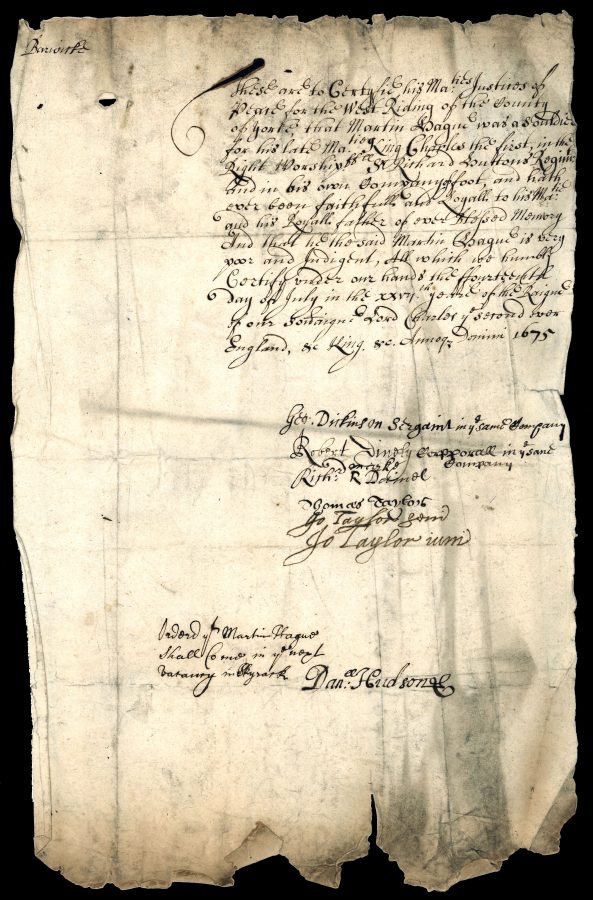 Barwicke
These are to Certyfie his Ma:ties Justices of
Peace for the West Riding of the County
of Yorke, that Martin Hague was a Souldier
for his late Ma:tie King Charles the first, in the
Right Worship:ll Sr Richard Huttons Regim
And in his own Company of foot, and hath
ever been faithfull and Loyall to his Ma:tie
and his Royall father of ever Blessed Memory
And that he the said Martin Hague is very
poor and Indigent, All which we humbly
Certify under our hands the fourteenth
Day of July in the xxvij:th yeare of the Raigne
of our Souaigne Lord Charles ye second over
England, &c King, &c. Annoq Domini 1675
Geo: Dickinson Sergaint in ye same Company
Robert Corporall in ye same
Company
Rich: R Daniel
marke
Thomas Taylor
Jo Taylor seni
Jo Taylor iuni
Orderd yt Martin Hague
shall Come in ye next
vacancy in Skyrack
Dan:ll Hudson